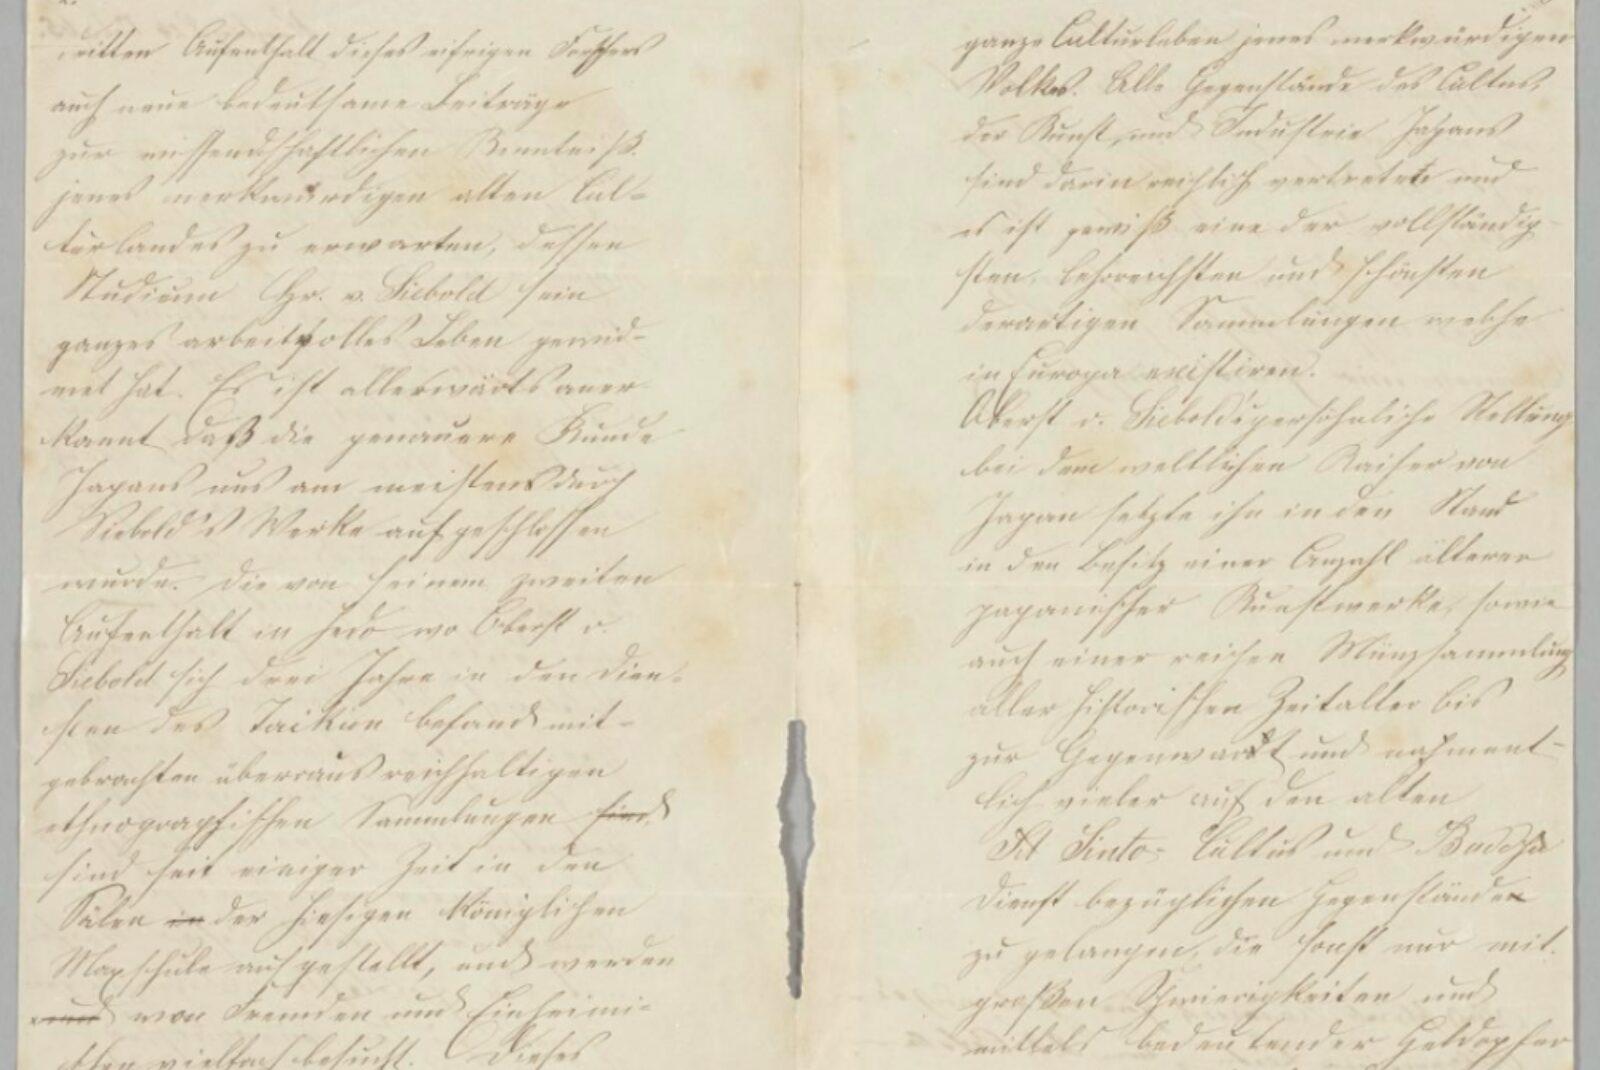 dritten Aufenthalt dieses eifrigen Forschers
auch neue bedeutsame Beiträge
zur wissendschaftlichen Kenntniß
jenes merkwürdigen alten Cul-
turlandes zu erwarten, dessen
Studium Hr. v. Siebold sein
ganzes arbeitvolles Leben gewid-
met hat. Es ist allerwärts aner
kannt daß die genauere Kunde
Japans uns am meistens durch
Siebold's Werke aufgeschlossen
wurde. Die von seinem zweiten
Aufenthalt in Jedo wo Oberst v.
Siebold sich drei Jahre in den Dien-
sten des Taikun befand mit-
gebrachten überaus reichhaltigen
ethnographischen Sammlungen sind
sind seit einiger Zeit in den
Sälen in der hiesigen Königlichen
Maxschule aufgestellt, und werden
und von Fremden und Einheimi-
schen vielfach besucht. Dieses
ganze Culturleben jenes merkwürdigen
Volkes. Alle Gegenstände des Cultus,
der Kunst, und Industrie Japans
sind darin reichlich vertreten und
es ist gewiß eine der vollständig-
sten, lehrreichsten und schönsten
derartigen Sammlungen welche
in Europa existiren.
Oberst v. Siebold's persöhnliche Stellung
bei dem weltlichen Kaiser von
Japan setzte ihn in den Stand
in den Besitz einer Anzahl älterer
japanischer Kunstwerke, sowie
auch einer reichen Münzsammlung
aller historischen Zeitalter bis
zur Gegenwart und nahment-
lich vieler auf den alten
Sinto- Cultus und Buddha
Dienst bezüglichen Gegenstände
zu gelangen, die sonst nur mit
großen Schwierigkeiten und
mittels bedeutender Geldopfer